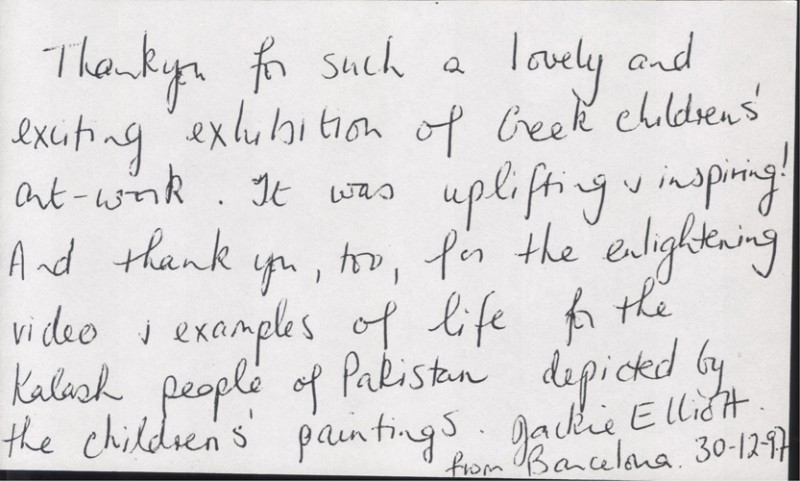 Thankyou for such a lovely and
exciting exhibition of Greek childrens'
art-work. It was uplifting & inspiring!
And thank you, too, for the enlightening
video & examples of life for the
Kalash people of Pakistan depicted by
the childrens' paintings. Jackie Elliott.
from Barcelona. 30-12-97